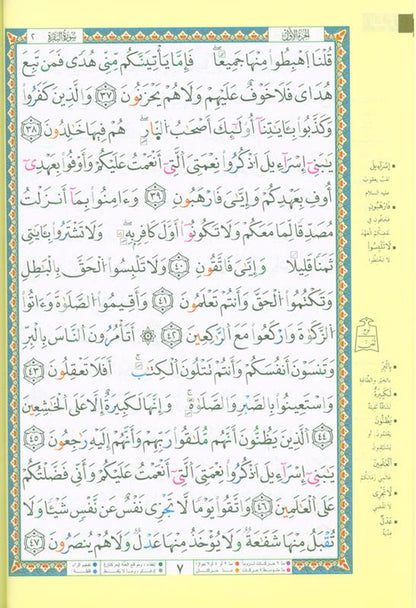 الجزء الأول
سورة البقرة ٢
قُلْنَا اهْبِطُوا مِنْهَا جَمِيعًا فَإِمَّا يَأْتِيَنَّكُم مِّنِّي هُدًى فَمَن تَبِعَ
هُدَايَ فَلَا خَوْفٌ عَلَيْهِمْ وَلَا هُمْ يَحْزَنُونَ ٣٧ وَالَّذِينَ كَفَرُوا
وَكَذَّبُوا بِآيَاتِنَا أُولَٰئِكَ أَصْحَابُ النَّارِ هُمْ فِيهَا خَالِدُونَ ٣٨
يَا بَنِي إِسْرَائِيلَ اذْكُرُوا نِعْمَتِيَ الَّتِي أَنْعَمْتُ عَلَيْكُمْ وَأَوْفُوا بِعَهْدِي
أُوفِ بِعَهْدِكُمْ وَإِيَّايَ فَارْهَبُونِ ٣٩ وَءَامِنُوا بِمَا أَنزَلْتُ
مُصَدِّقًا لِّمَا مَعَكُمْ وَلَا تَكُونُوا أَوَّلَ كَافِرٍ بِهِ وَلَا تَشْتَرُوا بِآيَاتِي
ثَمَنًا قَلِيلًا وَإِيَّايَ فَاتَّقُونِ ٤٠ وَلَا تَلْبِسُوا الْحَقَّ بِالْبَاطِلِ
وَتَكْتُمُوا الْحَقَّ وَأَنتُمْ تَعْلَمُونَ ٤١ وَأَقِيمُوا الصَّلَاةَ وَءَاتُوا
الزَّكَاةَ وَارْكَعُوا مَعَ الرَّاكِعِينَ ٤٢ ۞ أَتَأْمُرُونَ النَّاسَ بِالْبِرِّ
وَتَنسَوْنَ أَنفُسَكُمْ وَأَنتُمْ تَتْلُونَ الْكِتَابَ أَفَلَا تَعْقِلُونَ ٤٣
وَاسْتَعِينُوا بِالصَّبْرِ وَالصَّلَاةِ وَإِنَّهَا لَكَبِيرَةٌ إِلَّا عَلَى الْخَاشِعِينَ
٤٤ الَّذِينَ يَظُنُّونَ أَنَّهُم مُّلَاقُوا رَبِّهِمْ وَأَنَّهُمْ إِلَيْهِ رَاجِعُونَ ٤٥
يَا بَنِي إِسْرَائِيلَ اذْكُرُوا نِعْمَتِيَ الَّتِي أَنْعَمْتُ عَلَيْكُمْ وَأَنِّي فَضَّلْتُكُمْ
عَلَى الْعَالَمِينَ ٤٦ وَاتَّقُوا يَوْمًا لَّا تَجْزِي نَفْسٌ عَن نَّفْسٍ شَيْئًا وَلَا
تُقْبَلُ مِنْهَا شَفَاعَةٌ وَلَا يُؤْخَذُ مِنْهَا عَدْلٌ وَلَا هُمْ يُنصَرُونَ ٤٧
٧
إِسْرَائِيلَ
لقب يعقوب
عليه السلام
فَارْهَبُونِ
لَا تَلْبِسُوا
لا تخلطوا
بِالْبِرِّ
لَكَبِيرَةٌ
يَظُنُّونَ
الْعَالَمِينَ
لَا تَجْزِي
لا تقضي
عَدْلٌ
فدية